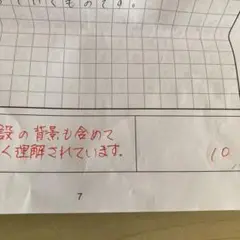 いくものです。
設の背景も含めて
く理解されています。
10
7